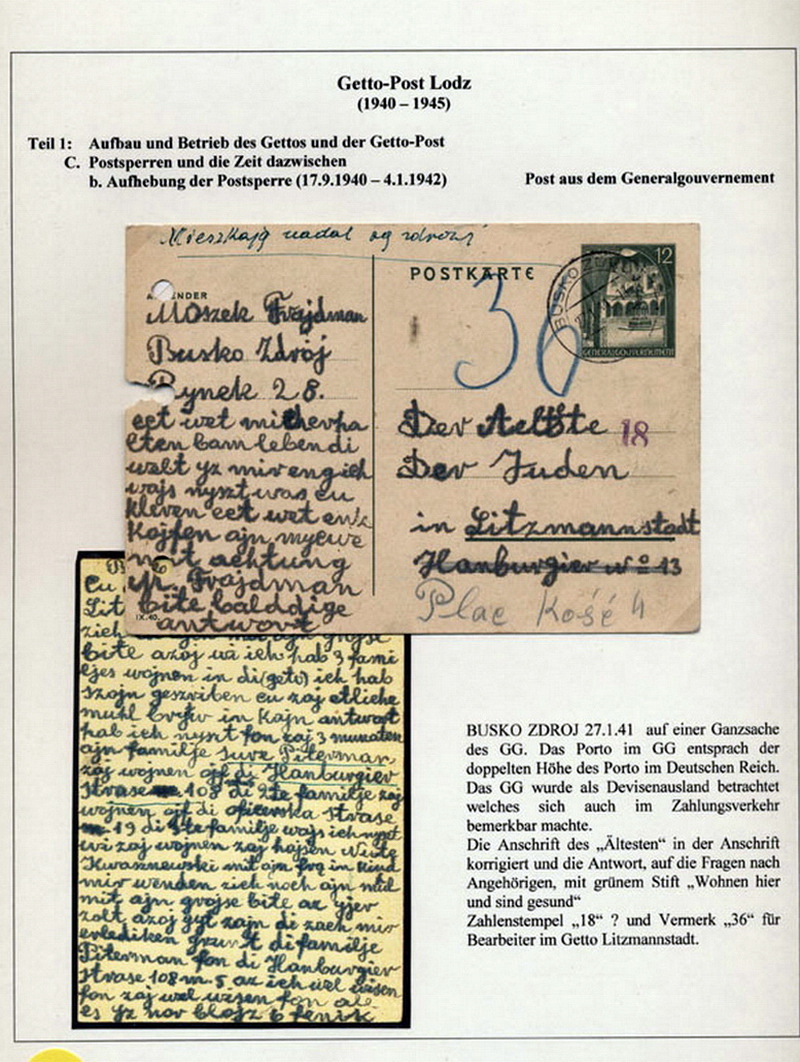 Getto-Post Lodz
(1940 – 1945)
Teil 1: Aufbau und Betrieb des Gettos und der Getto-Post
C. Postsperren und die Zeit dazwischen
b. Aufhebung der Postsperre (17.9.1940 – 4.1.1942)
Post aus dem Generalgouvernement
Mieszkają nadal są zdrozi
Moszek Frajdman
Busko Zdrój
Rynek 28.
eet wet mir derha
lten bam leben di
welt yz mir eng ich
wajs nyszt was cu
kleren eet wet enk
Kojfen ajn mycwe
mit achtung
M. Frajdman
bite balddige
antwort
POSTKARTE
36
BUSKO
12
GENERALGOUVERNEMENT
Der Aeltste
18
Der Juden
in Litzmannstadt
Hanburgier No 13
Plac Kość 4
Cu
Lit
zich
bite azoj wi ich hab 3 fami
ljes wojnen in di (geto) ich hab
szojn geszriben cu zaj etliche
muhl bryw in Kajn antwort
hab ich nyszt fon zaj 3 munaten
ajn familje Sure Piterman,
zaj wojnen ojf di Hanburgier
Strase 108 di 2te familje zaj
wojnen ojf di oficerska Strase
19 di 3te familje wajs ich nyszt
wi zaj wojnen zaj hajsen
Kwasznewski mit ajn frq in Kind
mir wenden zich noch ajn mul
mit ajn grojse bite az yjer
zolt azoj gyt zajn di zach mir
erlediken di familje
Piterman fon di Hanburgier
Strase 108 m. 5 az ich wel wisen
fon zaj wel wisen fon ale
es yz nor blojz 6 fenik
BUSKO ZDROJ 27.1.41 auf einer Ganzsache
des GG. Das Porto im GG entsprach der
doppelten Höhe des Porto im Deutschen Reich.
Das GG wurde als Devisenausland betrachtet
welches sich auch im Zahlungsverkehr
bemerkbar machte.
Die Anschrift des „Ältesten" in der Anschrift
korrigiert und die Antwort, auf die Fragen nach
Angehörigen, mit grünem Stift „Wohnen hier
und sind gesund"
Zahlenstempel „18" ? und Vermerk „36" für
Bearbeiter im Getto Litzmannstadt.